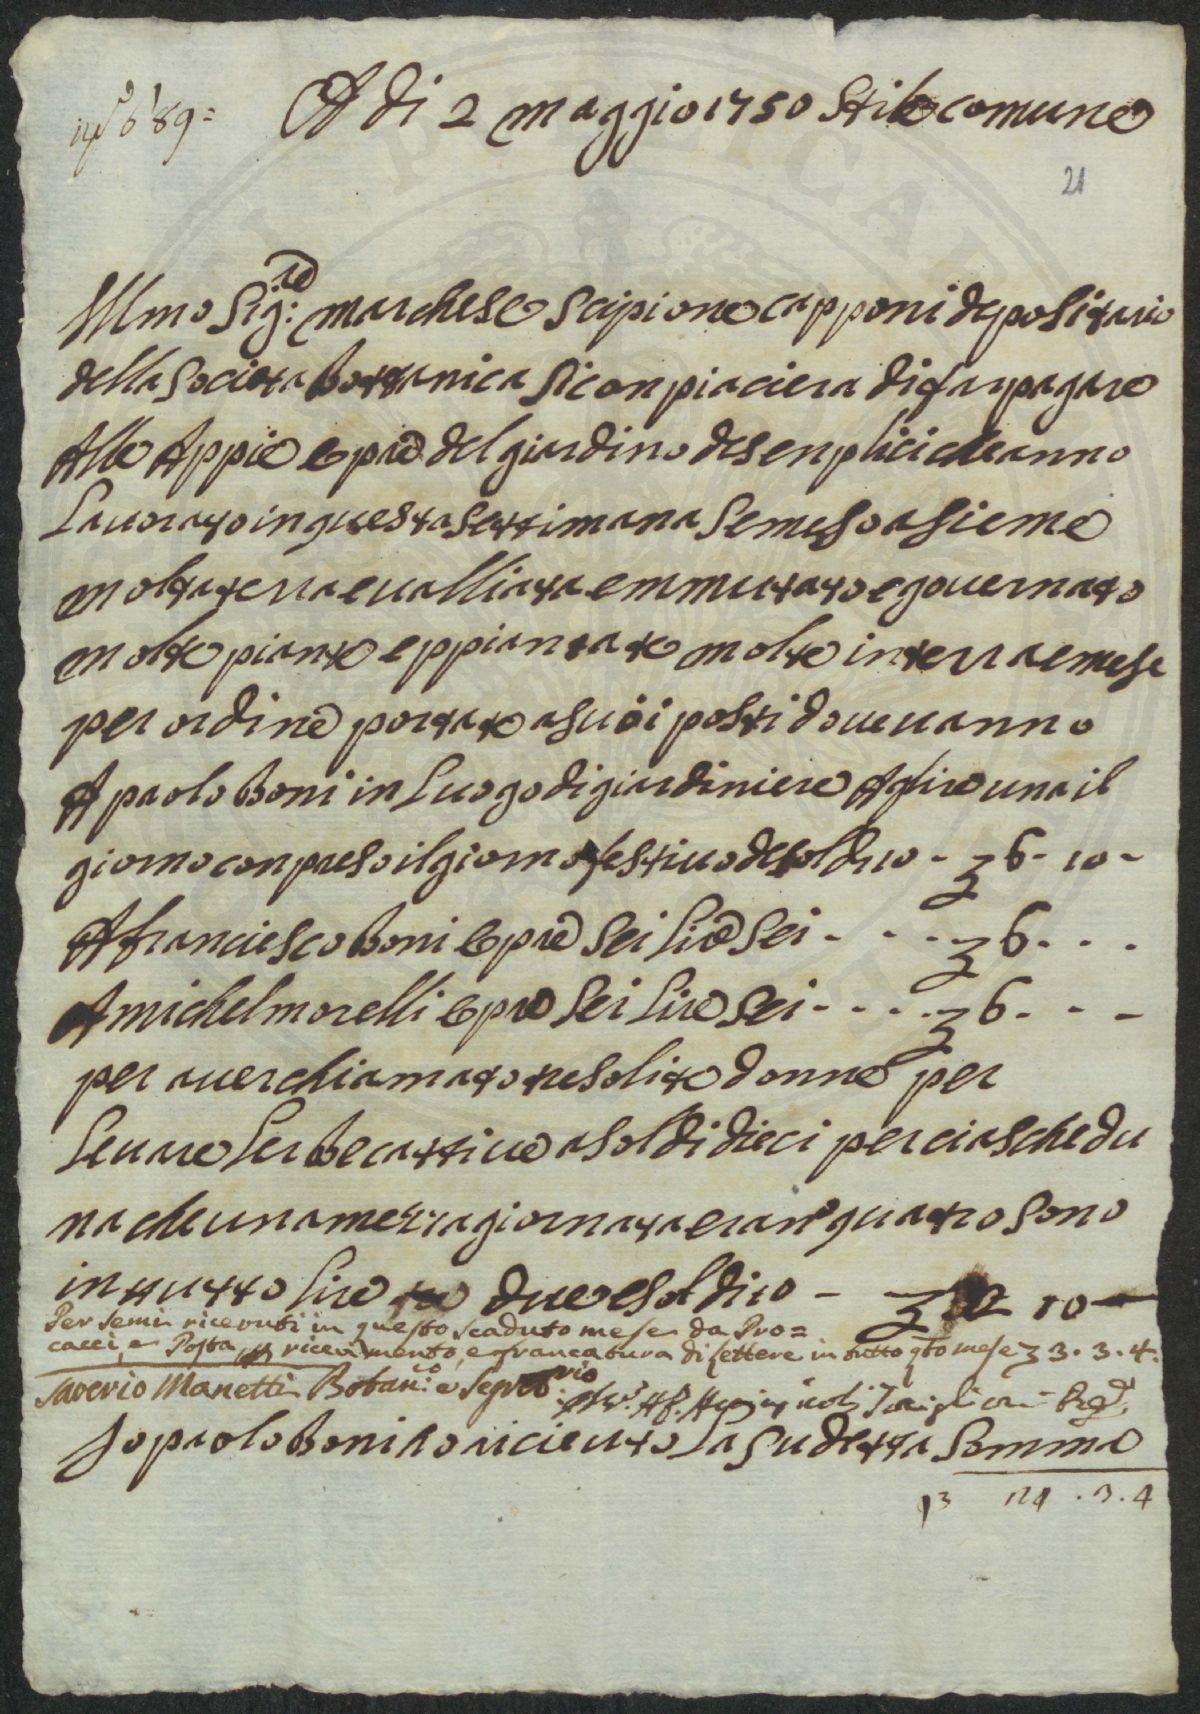 A di 2 maggio 1750 Stile comune
21
Illmo Sig:re marchese Scipione capponi depositario
della Societa bottanica Si conpiaciera di far pagare
Alle Appie opre del giardino de senplici che anno
Lavorato in questa settimana Se meso asieme
molta terra e valliata emmutato e governato
molte piante eppiantate molte in terra e mese
per ordine portate a suoi posti dove vanno
A paolo Boni in Luogo di giardiniere A lire una il
giorno conpreso il giorno festivo de soldi 10 - 6 - 10 -
A franciesco Boni opre sei Lire Sei - - - 6 - - -
A michel morelli opre Sei Lire Sei - - - - 6 - - -
per aver chiamato re solite donne per
Levare Lerbe cattive a Soldi dieci per ciaschedu
na che una mezza giornata eran quatro sono
in tutto Lire due e Soldi 10 - 2 10
Per semi ricevuti in questo scaduto mese da Pro=
cacci, e Posta, ricevimento, e francatura di lettere in tutto qto mese 3 . 3 . 4 .
Saverio Manetti Botan:co e Segret:rio
Io paolo Boni o riceuto La sudetta Somma
24 . 3 . 4